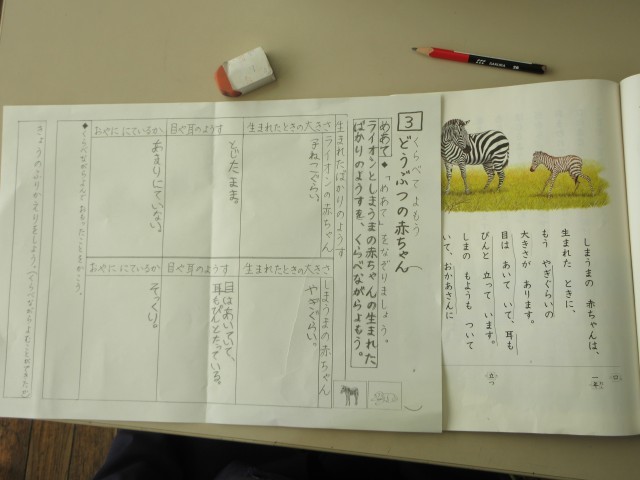 しまうまの 赤ちゃんは、
生まれた ときに、
もう やぎぐらいの
大きさが あります。
目は あいて いて、耳も
ぴんと 立って います。
しまの もようも ついて
いて、おかあさんに
立つ
くらべてよもう
3 どうぶつの赤ちゃん
めあて ◆「めあて」をなぞりましょう。
ライオンとしまうまの赤ちゃんの生まれた
ばかりのようすを、くらべながらよもう。
生まれたばかりのようす
ライオンの赤ちゃん
生まれたときの大きさ
子ねこぐらい
目や耳のようす
とじたまま。
おやににているか
あまりにていない。
しまうまの赤ちゃん
生まれたときの大きさ
やぎぐらい。
目や耳のようす
目はあいていて、
耳もぴんとたっている。
おやににているか
そっくり。
◆くらべながらよんで、おもったことをかこう。